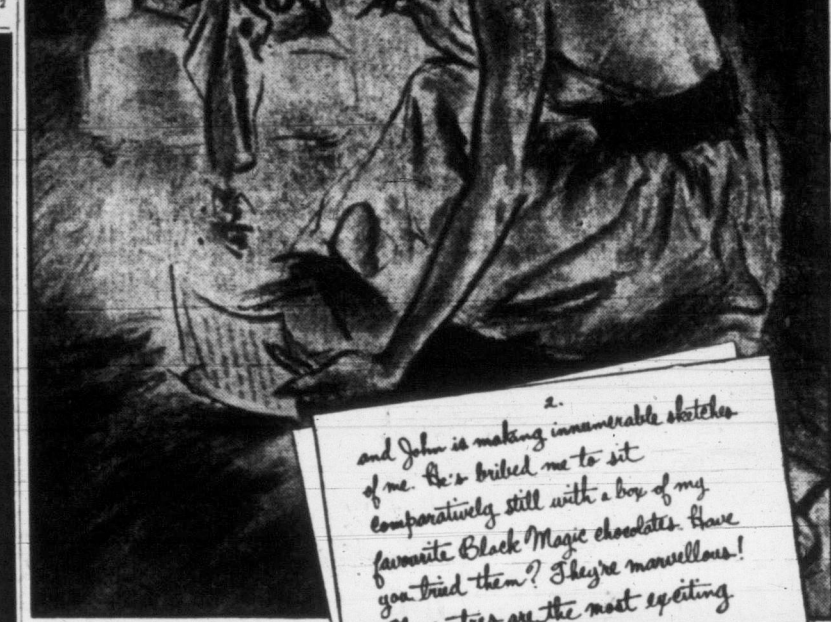 2.
and John is making innumerable sketches
of me. He's bribed me to sit
comparatively still with a box of my
favourite Black Magic chocolates. Have
you tried them? They're marvellous!
are the most exciting